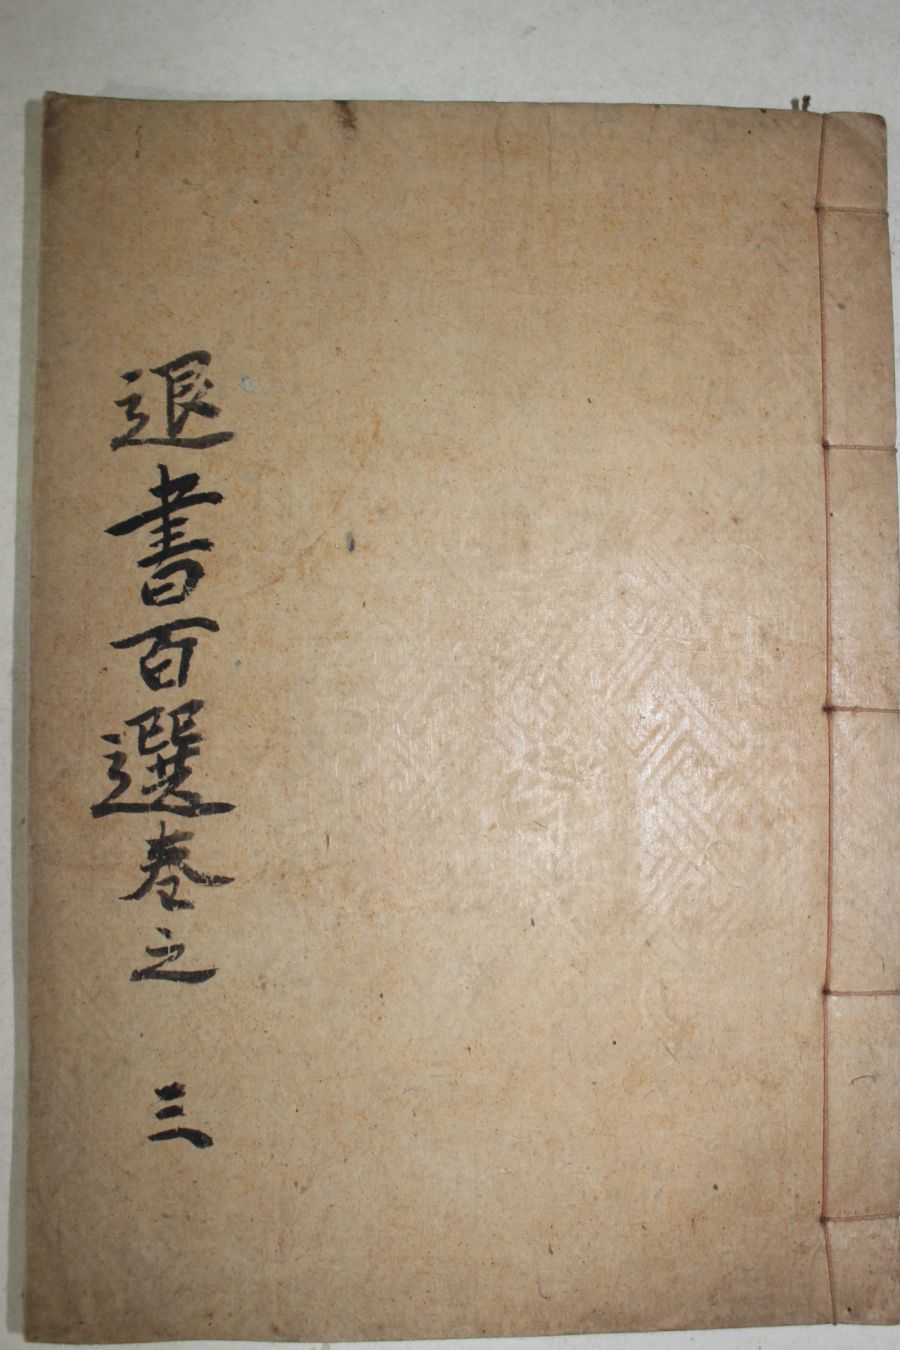 退書百選卷之 三